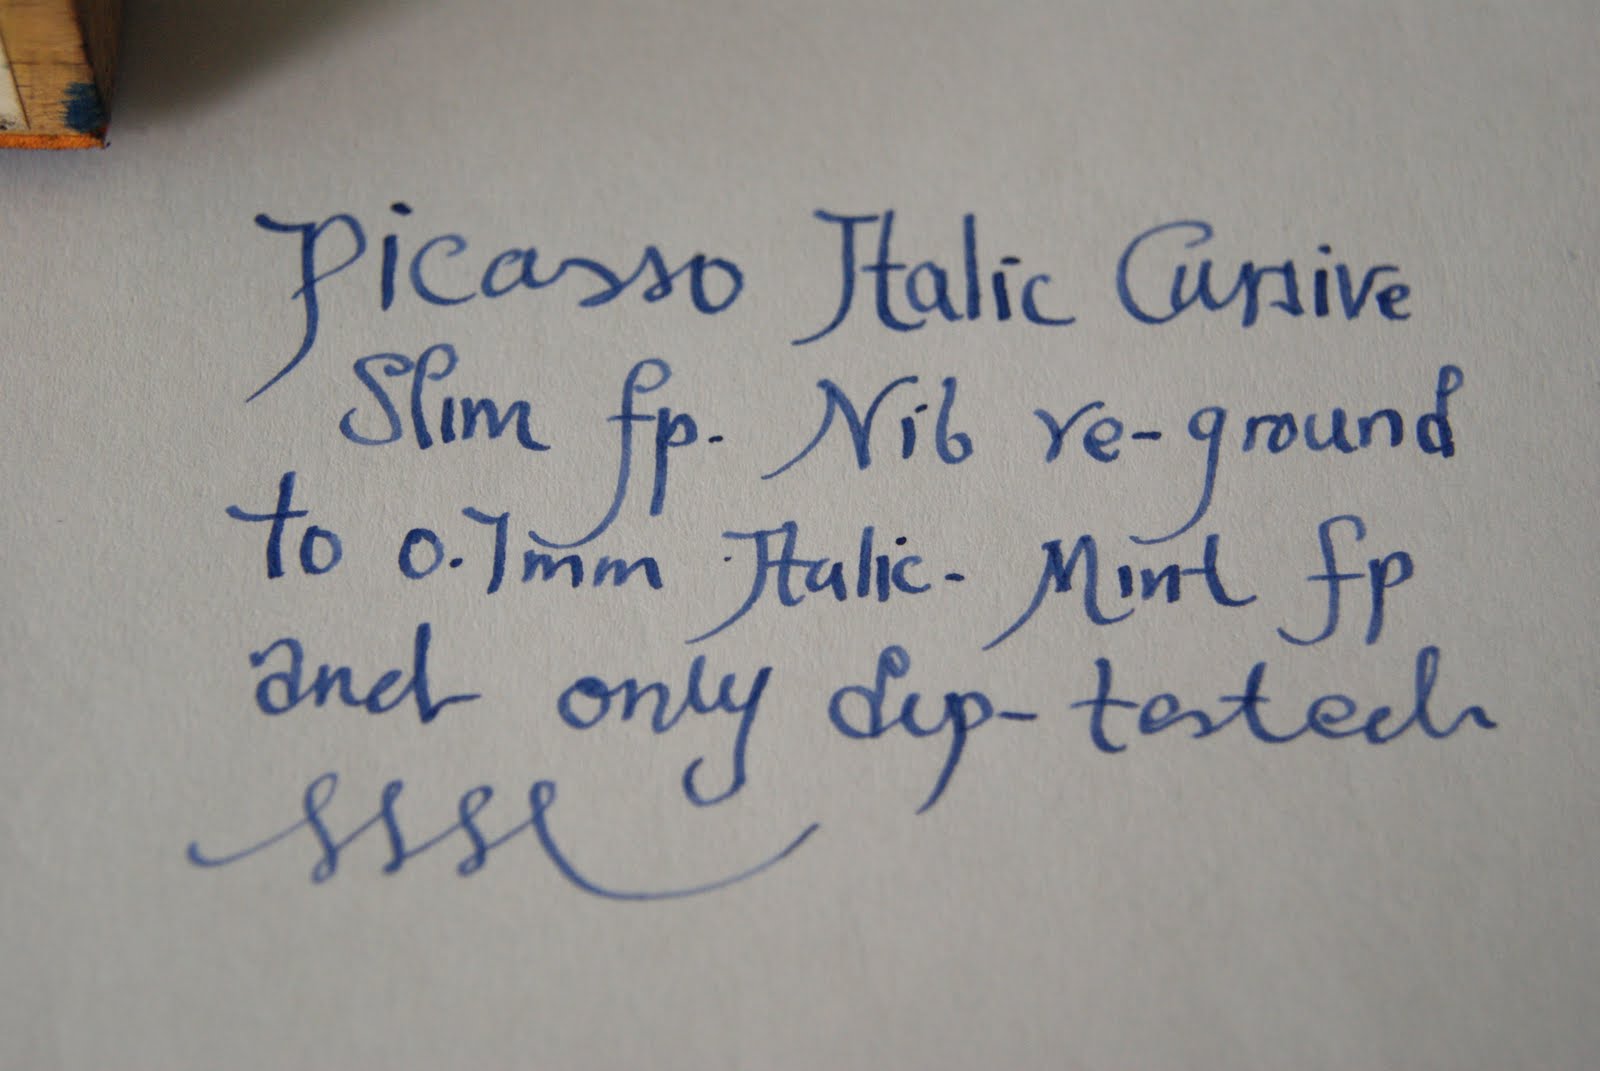 Picasso Italic Cursive
Slim fp. Nib re-ground
to 0.7mm Italic. Mint fp
and only dip-tested